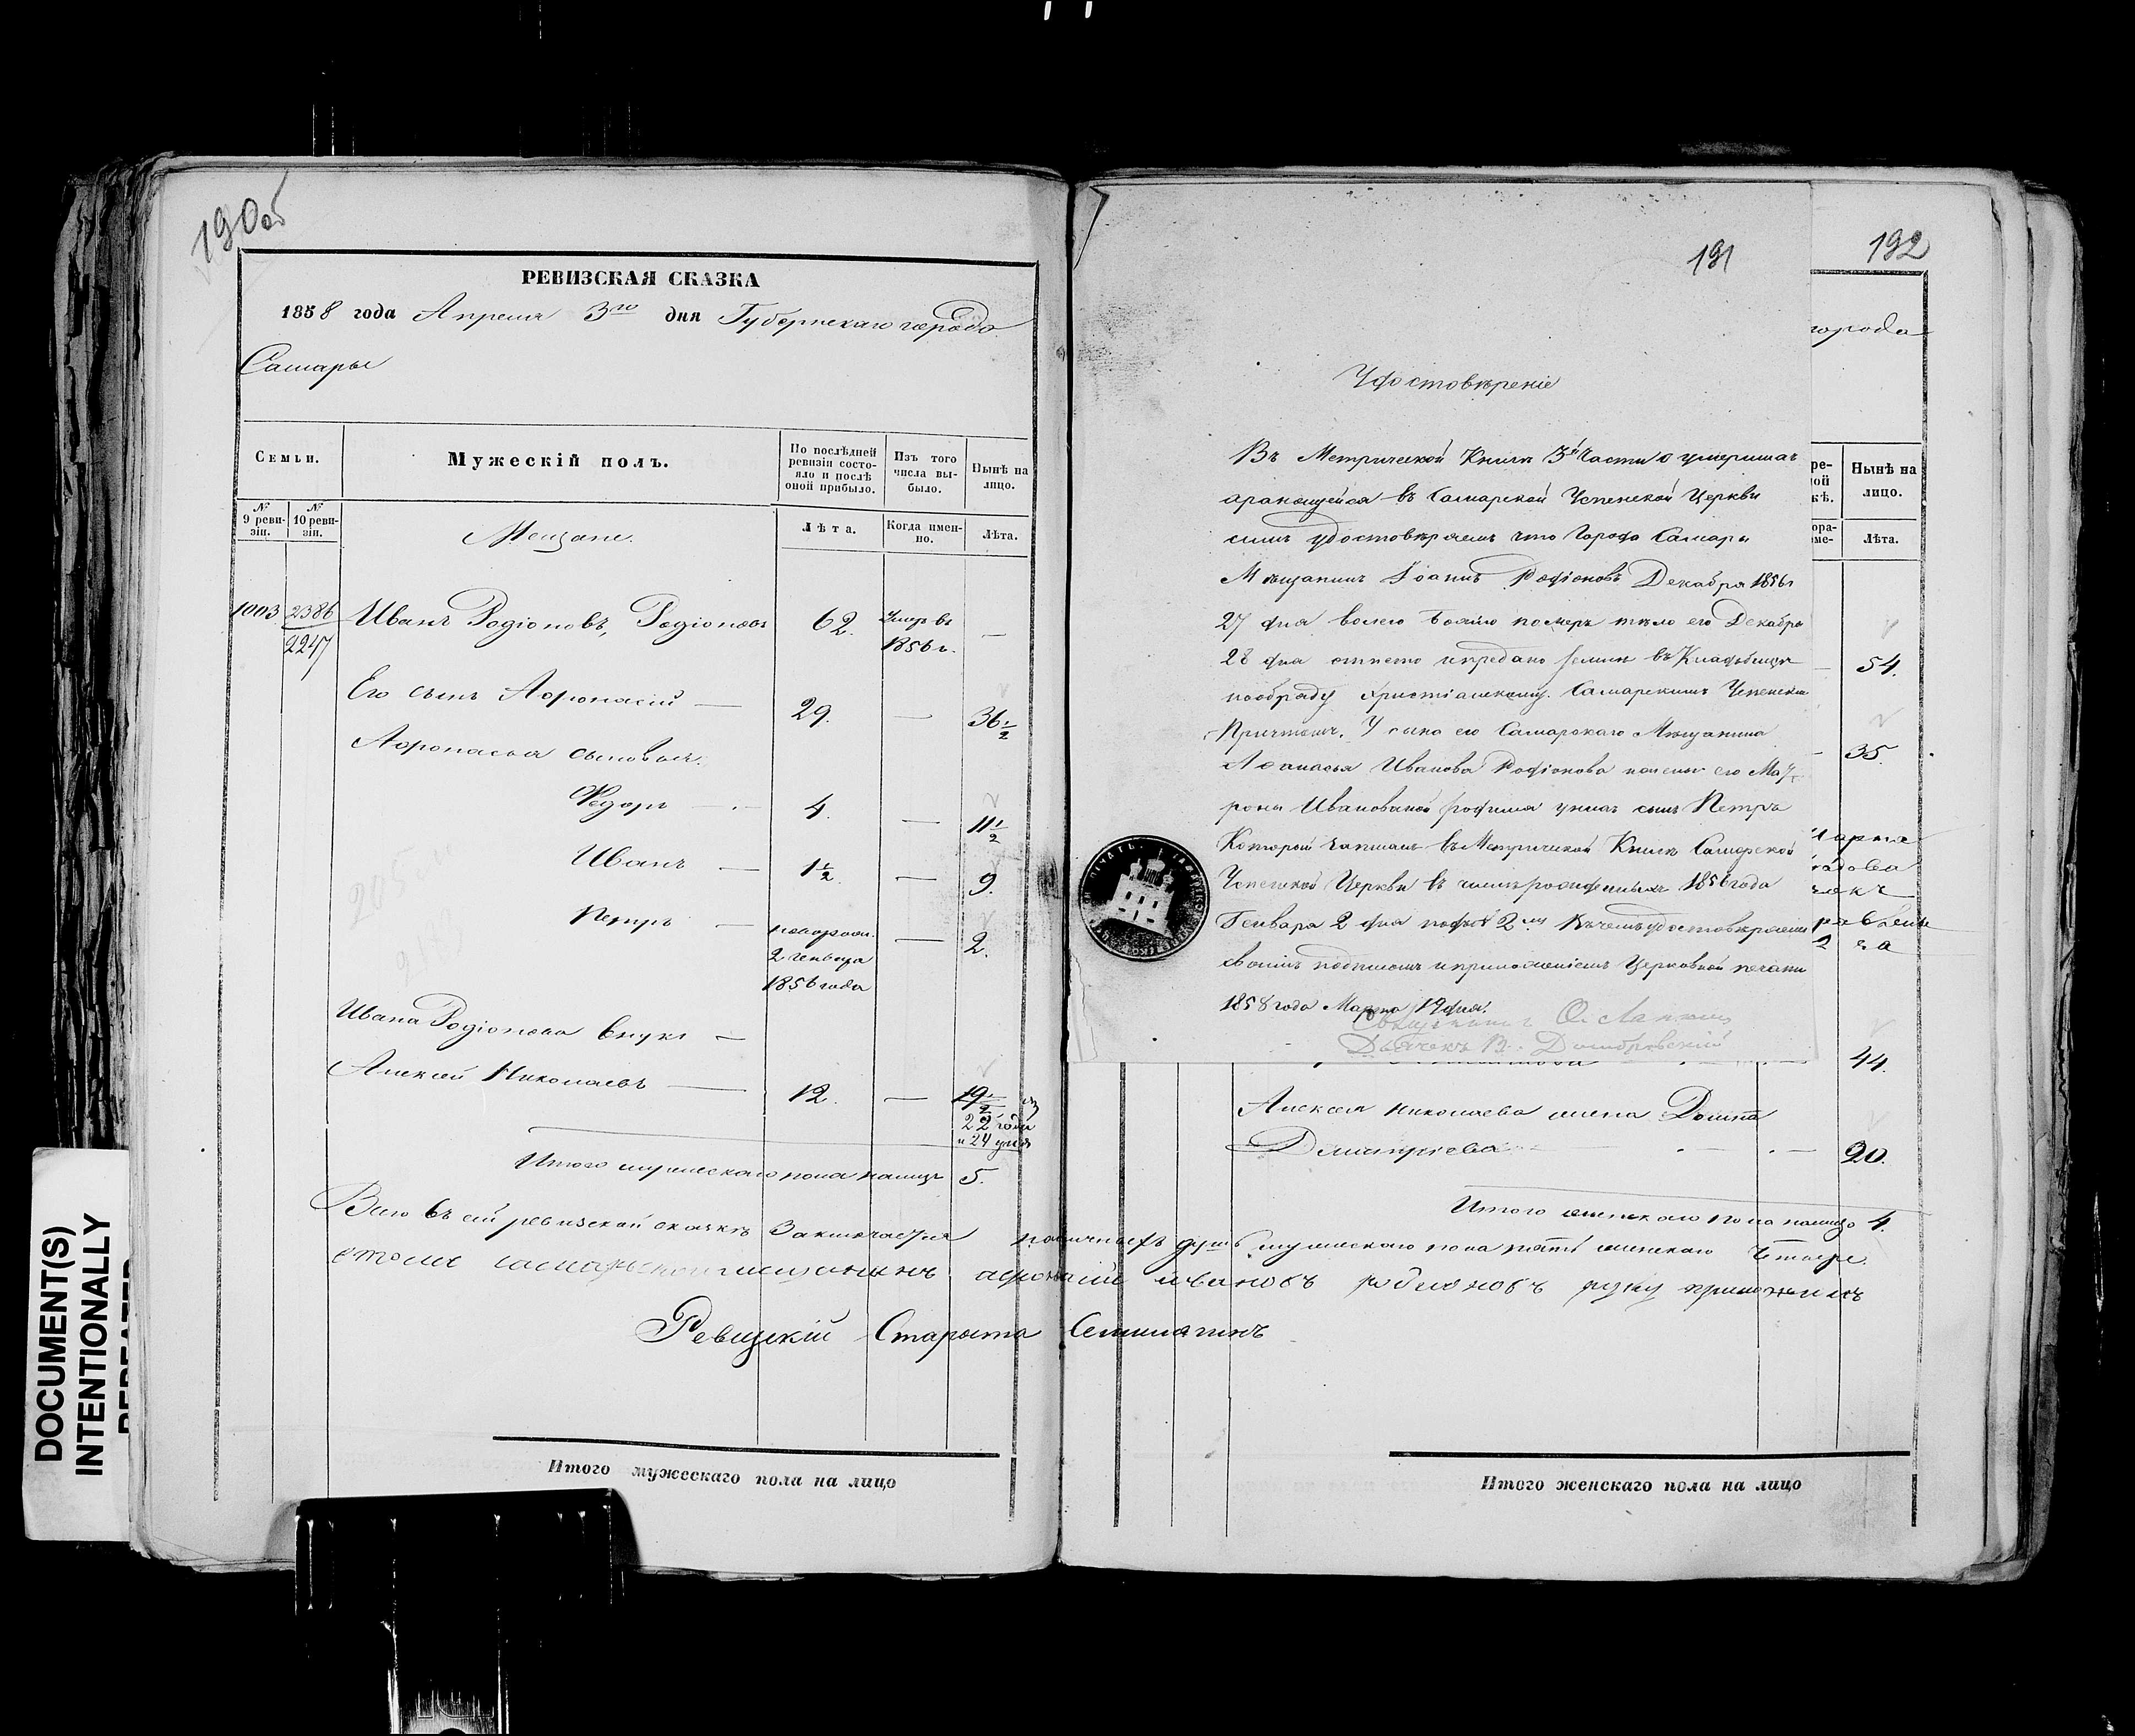 190об
РЕВИЗСКАЯ СКАЗКА
1858 года Апреля 3го дня Губернскаго города
Самары
Семьи.
Мужескій полъ.
По послѣдней ревизіи состояло и послѣ оной прибыло.
Изъ того числа выбыло.
Нынѣ на лицо.
№ 9 ревизіи.
№ 10 ревизіи.
Мещане.
Лѣта.
Когда именно.
Лѣта.
1003 2386 Иванъ Родіоновъ, Родіоновъ 62. Умер въ —
2247 1856 г.
Его сынъ Афонасій — 29. — 36 1/2
Афонасья сыновья.
Федоръ — 4. — 11 1/2
Иванъ — 1 1/2. — 9.
Петръ — новорожд. — 2.
2 генваря
1856 года
Ивана Родіонова внукъ —
Алексей Николаевъ — 12. — 19 1/2
22 года
и 24 дня
Итого мужескаго пола налицо 5.
Всего въ сей ревизской сказкѣ заключается наличныхъ душъ мужескаго пола пять женскаго четыре.
кътому самарской мещенинъ афонасій ивановъ родионовъ руку приложилъ
Ревизскій Староста
Итого мужескаго пола на лицо
191
Удостовѣреніе
Въ Метрической Книгѣ 3й Части о умершихъ
хранящейся въ Самарской Успенской Церкви
симъ удостовѣряемъ что Города Самары
Мѣщанинъ Іоаннъ Родіоновъ Декабря 1856 г
27 дня волею Божіею померъ тѣло его Декабря
28 дня отпето и предано земли въ Кладбищѣ
по обряду христіанскому. Самарскимъ Успенским
Причтомъ. У сына его Самарскаго Мѣщанина
Афанасья Иванова Родіонова и жены его Мат
роны Ивановой родился у нихъ сынъ Петръ
Который записанъ въ Метрической Книгѣ Самарской
Успенской Церкви въ числѣ рожденныхъ 1856 года
Генваря 2 дня подъ № 2мъ въ чемъ удостовѣряемъ
своимъ подписомъ и приложеніемъ Церковной печати
1858 года Марта 19 дня.
Священникъ
Дьячекъ В. Домбровскій
192
города
Нынѣ на лицо.
Лѣта.
54.
35.
2
44.
Алексея Николаева жена
Дмитріева — 20.
Итого женскаго пола налицо 4.
Итого женскаго пола на лицо
DOCUMENT(S)
INTENTIONALLY